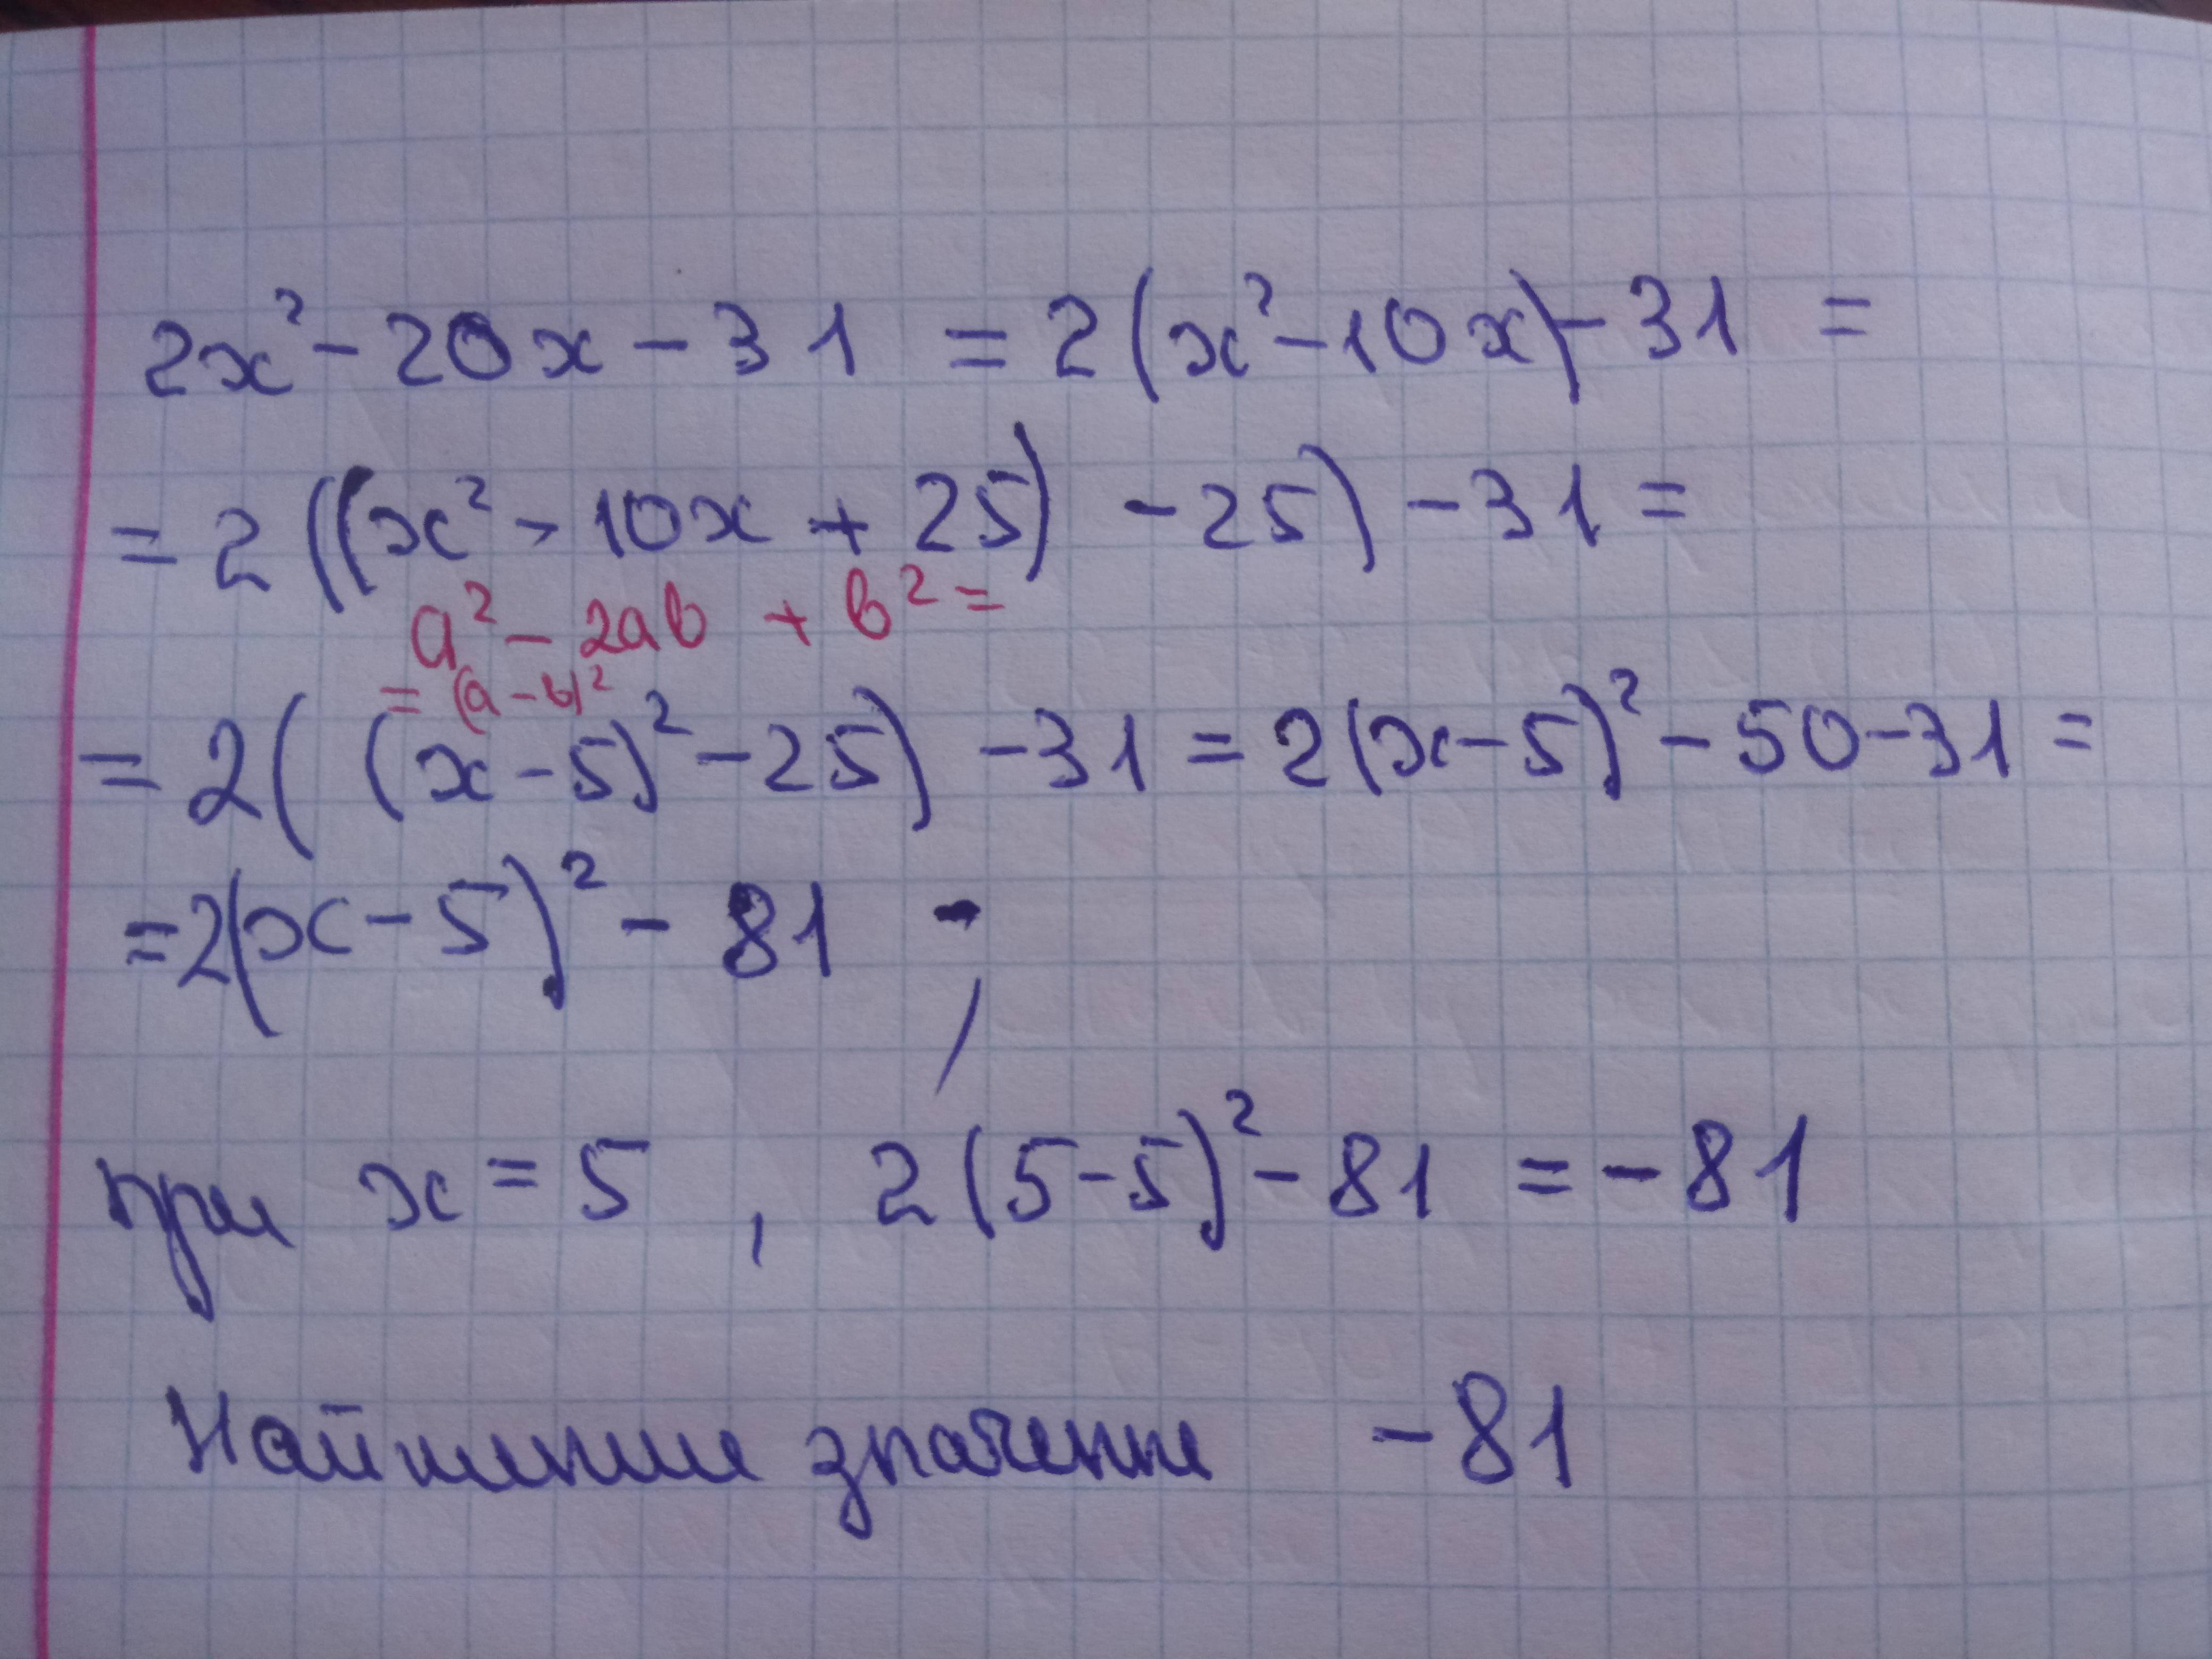 2x² - 20x - 31 = 2(x² - 10x) - 31 =
= 2((x² - 10x + 25) - 25) - 31 =
a² - 2ab + b² =
= (a - b)²
= 2((x - 5)² - 25) - 31 = 2(x - 5)² - 50 - 31 =
= 2(x - 5)² - 81 ;
при x = 5 , 2(5 - 5)² - 81 = - 81
значение - 81